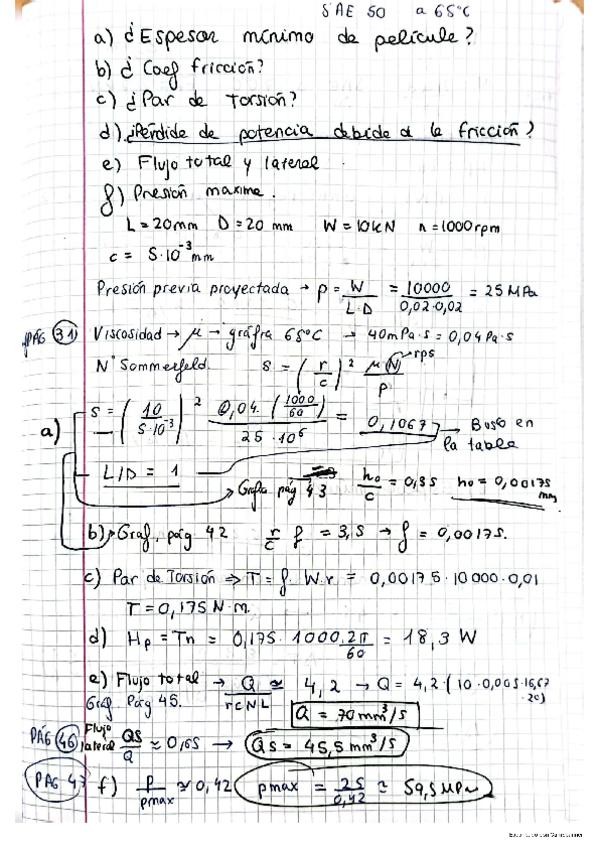 SAE 50 a 65°C
a) ¿Espesor mínimo de película?
b) ¿Coef fricción?
c) ¿Par de Torsión?
d) ¿Pérdida de potencia debida a la fricción?
e) Flujo total y lateral
f) Presión maxima.
L = 20mm D = 20 mm W = 10kN n = 1000rpm
c = 5·10⁻³ mm
Presión previa proyectada → p = W / L·D = 10000 / 0,02·0,02 = 25 MPa
PÁG 31 Viscosidad → μ → gráfra 65°C → 40mPa·s = 0,04 Pa·s
N° Sommerfeld. S = (r/c)² μN/p rps
a) S = (10 / 5·10⁻³)² 0,04·(1000/60) / 25·10⁶ = 0,1067 → Busco en la tabla
L/D = 1 → Grafica pág 43 ho/c = 0,35 ho = 0,00175 mm
b) Graf. pág 42 r/c f = 3,5 → f = 0,00175.
c) Par de Torsión ⇒ T = f·W·r = 0,00175·10000·0,01
T = 0,175 N·m.
d) Hp = Tn = 0,175·1000·2π/60 = 18,3 W
e) Flujo total → Q / rCNL ≃ 4,2 → Q = 4,2·(10·0,005·16,67·20)
Graf. Pág 45. Q = 70mm³/s
PÁG 46 Flujo lateral Qs/Q ≈ 0,65 → Qs = 45,5 mm³/s
PAG 47 f) P/pmax ≃ 0,42 pmax = 25/0,42 ≃ 59,5 MPa